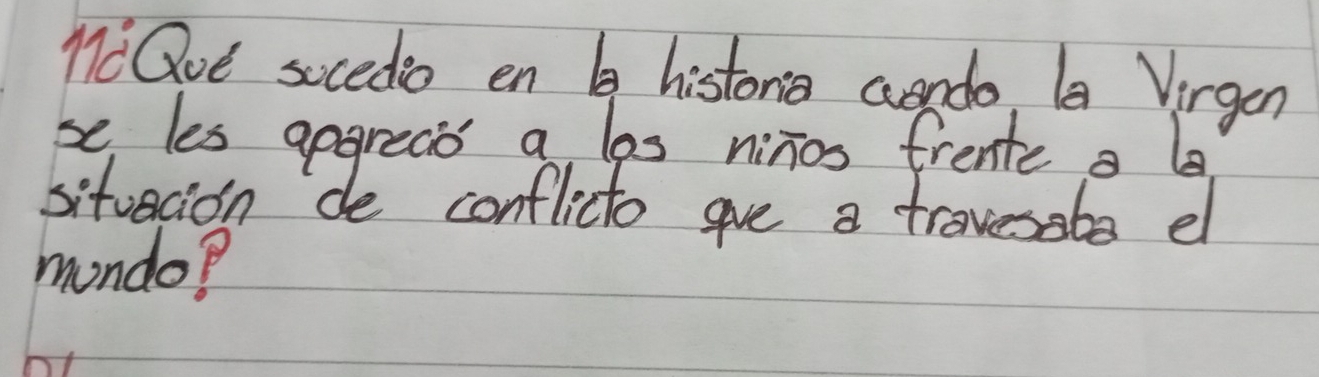 11¿Qué sucedio en la historia cuando la Virgen
se les apareció a los niños frente a la
situación de conflicto que a travesaba el
mundo?